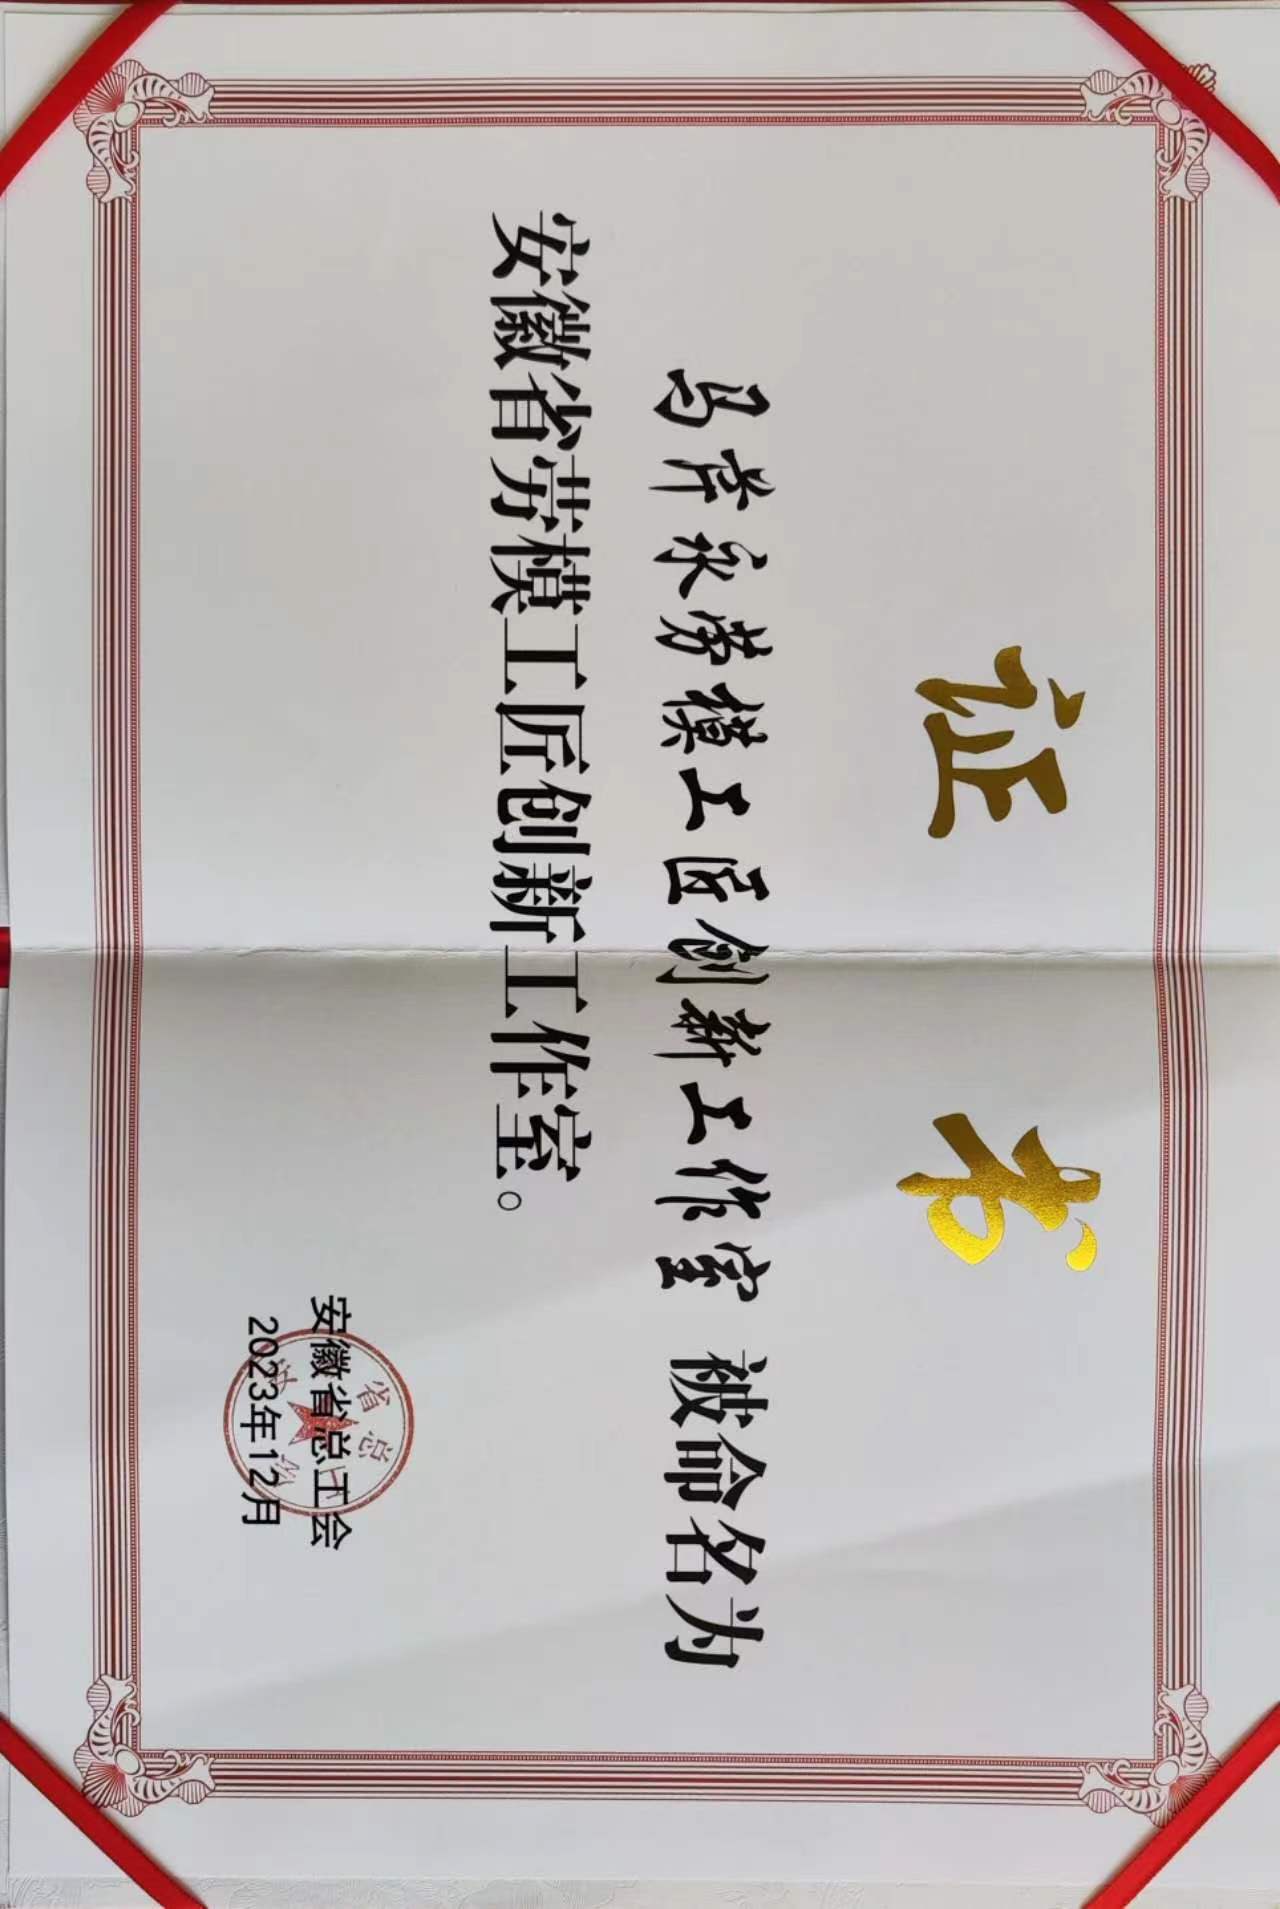 证书
马 永劳模工匠创新工作室 被命名为
安徽省劳模工匠创新工作室。
安徽省总工会
2023年12月
省总